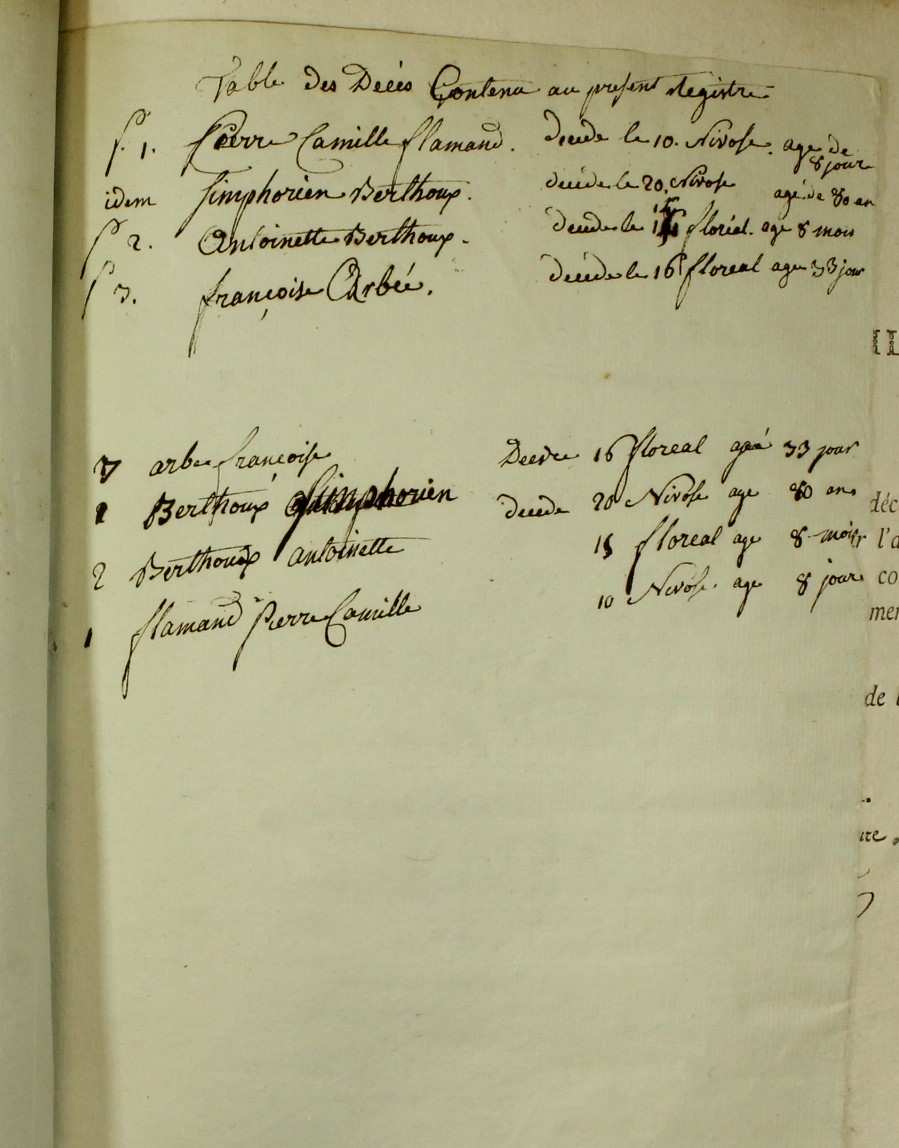 Table des Décés Contenu au present Registre
f. 1. Pierre Camille flamand. decede le 10. Nivose. age de 8 jour
idem Simphorien Berthoux. decéde le 20. Nivose agé de 80 an
f 2. Antoinette Berthoux. decede le floréal. age 8 mois
f 3. françoise Arbée. decéde le 16 floreal age 33 jour
3 arbe françoise Decede 16 floreal agé 33 jour
1 Berthoux Simphorien decede 20 Nivose age 80 ans
2 Berthoux antoinette 15 floreal age 8 mois
1 flamand Pierre Camille 10 Nivose age 8 jours
IL
déc
r l'a
co
mer
de l